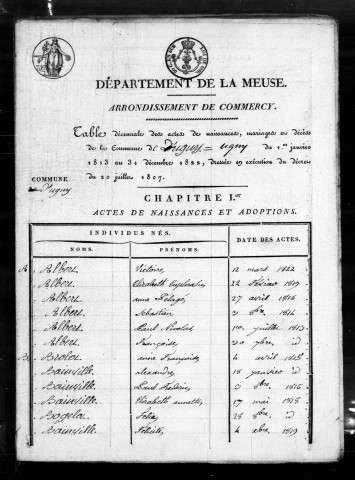 DÉPARTEMENT DE LA MEUSE.
ARRONDISSEMENT DE COMMERCY.
Table décennale des actes de naissances, mariages et décès
de la Commune de Pugny = ugny du 1.er janvier
1813 au 31 décembre 1822, dressée en exécution du décret
du 20 juillet 1807.
COMMUNE
CHAPITRE I.er
ACTES DE NAISSANCES ET ADOPTIONS.
INDIVIDUS NÉS.
NOMS. PRÉNOMS. DATE DES ACTES.
A Albert Victoire, 12 mars 1822
Albert Elizabeth 22 février 1819
Albert anne Pelagé 27 avril 1816
Albert Sébastien 8bre 1814
Albert Paul Nicolas juillet 1813
Albert Françoise 20 7bre id
B anne Françoise 4 avril 1818
Bainville alexandre, 18 janvier id
Bainville Paul 1816
Bainville Elizabeth annette, 17 mai 1818
Félix 28 8bre id
Bainville Felicité 1819